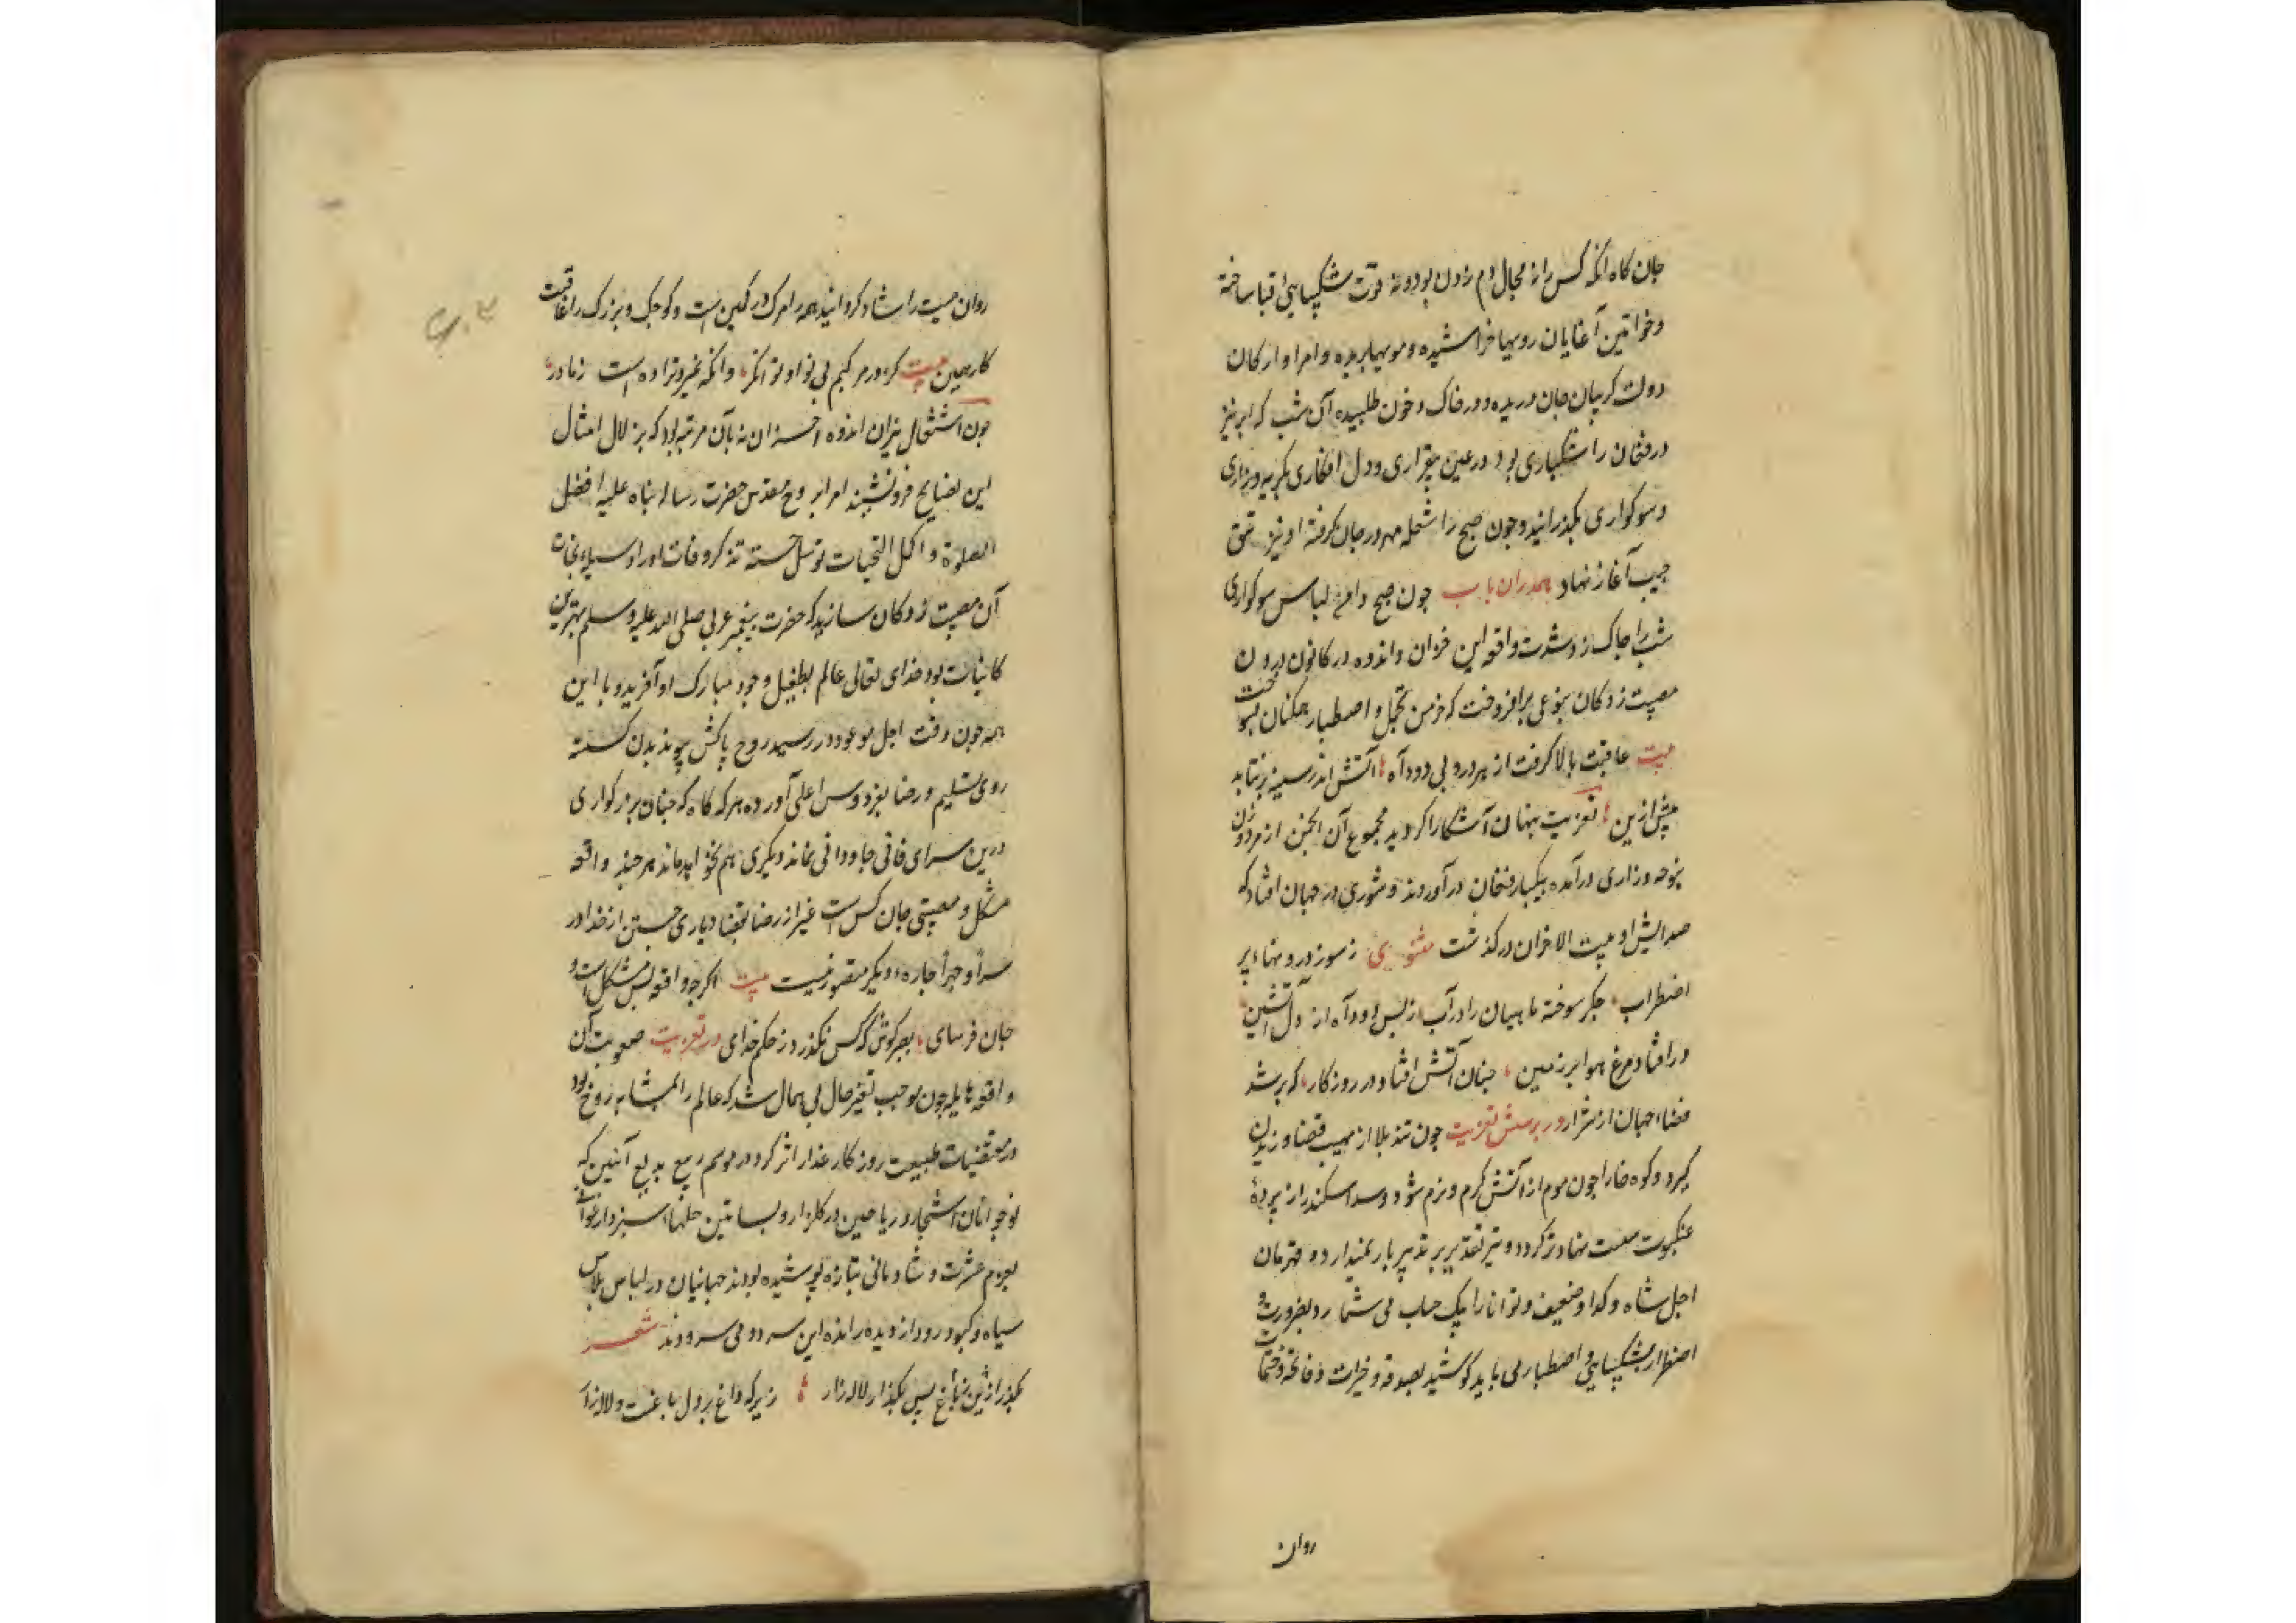 جان کاه انکه کس را نه مجال دم زدن بود و نه قوّت شکیبایی قبا ساخته
و خواتین آغایان رویها خراشیده و مویها بریده و امرا و ارکان
دولت کریبان جان دریده و در خاک و خون طلبیده آن شب که ابر نیز
درفشان را شکباری بود در عین بیقراری و دل افکاری بکریه و زاری
و سوکواری بکذرانید و چون صبح را شعله مهر در جان کرفته او نیز شق
جیب آغاز نهاد همدران باب چون صبح دامن لباس سوکواری
شب را چاک زد شدت واقعه این خوان واندوه در کانون درون
مصیبت زدکان بنوعی برافروخت که خرمن تحمل و اصطبار همکنان بسوخت
بیت عاقبت بالا کرفت از هر درونی دود آه آتش اندر سینه برنتابد
پیش ازین تعزیت پنهان آشکارا کردید مجموع آن انجمن از مرد و زن
بنوحه و زاری درآمده بیکبار فغان درآوردند و شوری در جهان افتاد که
صدایش او بیت الاخزان درکذشت مثنوی ز سوز درونها در
اضطراب جکر سوخته ماهیان را در آب ز بس دود آه از دل آتشین
درافتاد مرغ هوا بر زمین چنان آتش افتاد در روزکار که پر شد
فضاء جهان از شرار در پرسش تعزیت چون تند بلا از مهب قضا وزیدن
کیرد و کوه خارا چون موم از آتش کرم و نرم شود و سد اسکندر از پردهٔ
عنکبوت سست نهادتر کردد و تیر تقدیر بر تدبیر باریمندارد و قهرمان
اجل شاه و کدا و ضعیف و توانا را یک حساب می شمارد بضرورت و
اضطرار بشکیبایی و اصطبار می باید کوشید بصدقه و خیرات و فاتحه و ختمات
روان
روان میت را شاد کردانید همه را مرک در کمین است و کوچک و بزرک را عاقبت
کار همین بیت کر در مرکیم بی نوا و توانکر وانکه نمیرد نزاده است ز مادر
چون اشتعال نیران اندوه احزان نه بآن مرتبه بود که بزلال امثال
این نصایح فرونشیند امرا بروح مقدس حضرت رسالت پناه علیه افضل
الصلوة و اکمل التحیات توسل جسته تذکر وفات او را وسیلهٔ نجات
آن مصیبت زدکان سازید که حضرت پیغمبر عربی صلی الله علیه وسلم بهترین
کاینات بود خدای تعالی عالم بطفیل وجود مبارک او آفرید و با این
همه چون وقت اجل موعود در رسید روح پاکش پیوند بدن کسسته
روی تسلیم و رضا بفردوس اعلی آورده هرکه کاه که چنان بزرکواری
درین سرای فانی جاودانی نماند دیکری هم نخواهد ماند هر چند واقعه
مشکل و مصیبتی جان کس است غیر از رضا بقضا و یاری جستن از خدا در
سرّاً و جهراً چاره دیکر متصوّر نیست بیت اکرچه واقعه بس مشکل است و
جان فرسای بصبر کوش که کس نکذرد ز حکم خدای در تعزیت صعوبت آن
واقعه هایله چون موجب تغیر حال بی همال شد که عالم را بمثابه روح بود
در مقتضیات طبیعت روزکار غدار اثر کرد در موسم ربیع بدیع آئین که
نوجوانان اشجار و ریاحین در کلزار و بساتین حلهاء سبز و ارغوانی
بعزم عشرت و شادمانی بتازه پوشیده بودند جهانیان در لباس پلاس
سیاه و کبود رود از دیده رانده این سرود می سرودند شعر
بکذر ازین باغ پس بکذار لاله زار زیرکه داغ بر دل باغست و لاله زار